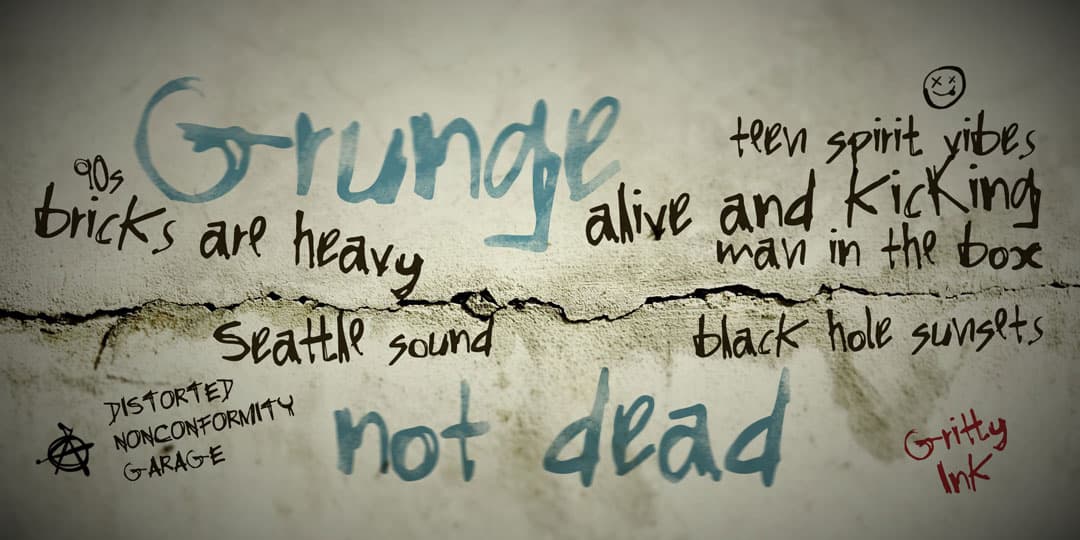 Grunge
90s
bricks are heavy
teen spirit vibes
alive and kicking
man in the box
Seattle sound
black hole sunsets
DISTORTED
NONCONFORMITY
GARAGE
not dead
Gritty
Ink